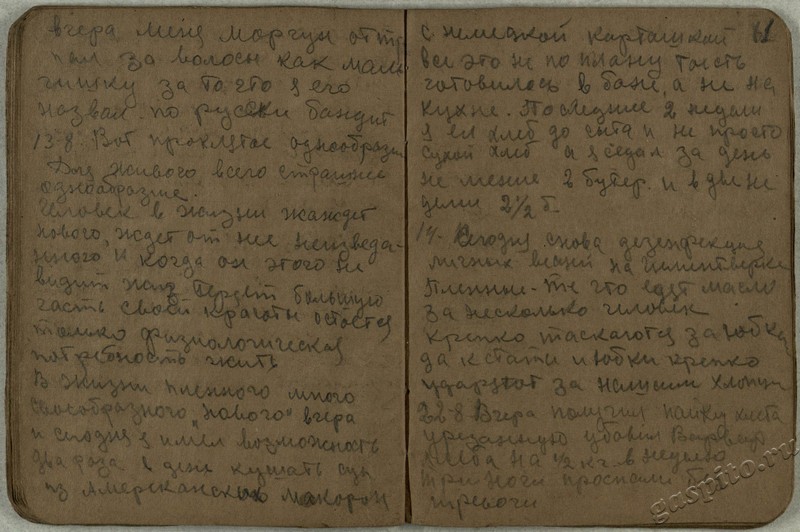 вчера меня моргун оттре
пал за волосы как маль
чишку за то что я его
назвал по русски бандит
13-8. Вот проклятое однообразие
Для живого всего страшнее
однообразие.
Человек в жизни жаждет
нового, ждет от нее неизведа-
нного и когда он этого не
видит жизнь теряет большую
часть своей красоты остается
только физиологическая
потребность жить
В жизни пленного много
своеобразного "нового" вчера
и сегодня я имел возможность
два раза в день кушать суп
из Американских макарон
61
с немецкой карташкой
все это не по плану то есть
готовилось в бане, а не на
кухне. Последние 2 недели
я ел хлеб до сыта и не просто
сухой хлеб а я съедал за день
не менее 2 бутер. и в две не
дели 2½
14- Сегодня снова дезенфекция
личных вещей на
Пленные- те что едят масло
за несколько человек
крепко таскаются за юбками
да кстати и юбки крепко
ударяют за нашими хлопцами
22-8 Вчера получил пайку хлеба
урезанную убавил
хлеба на ½ кг. в неделю
три ночи проспали без
тревоги
gaspito.ru